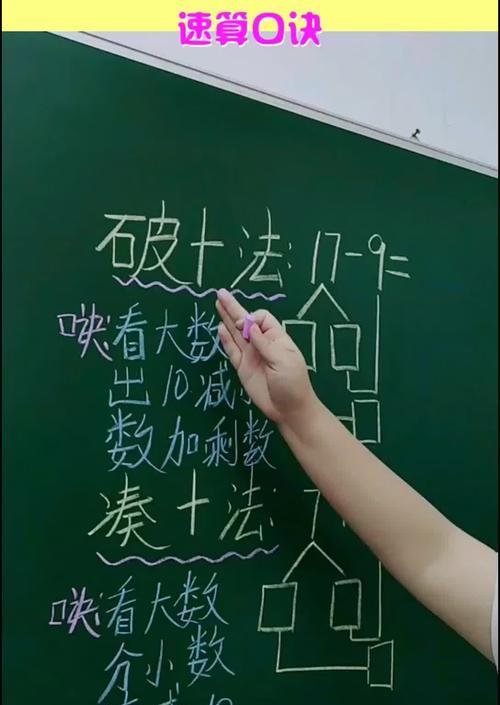 速算口诀
破十法: 17-9=
诀:看大数
出10减
数加剩数
凑十法: 7
诀:看大数
分小数